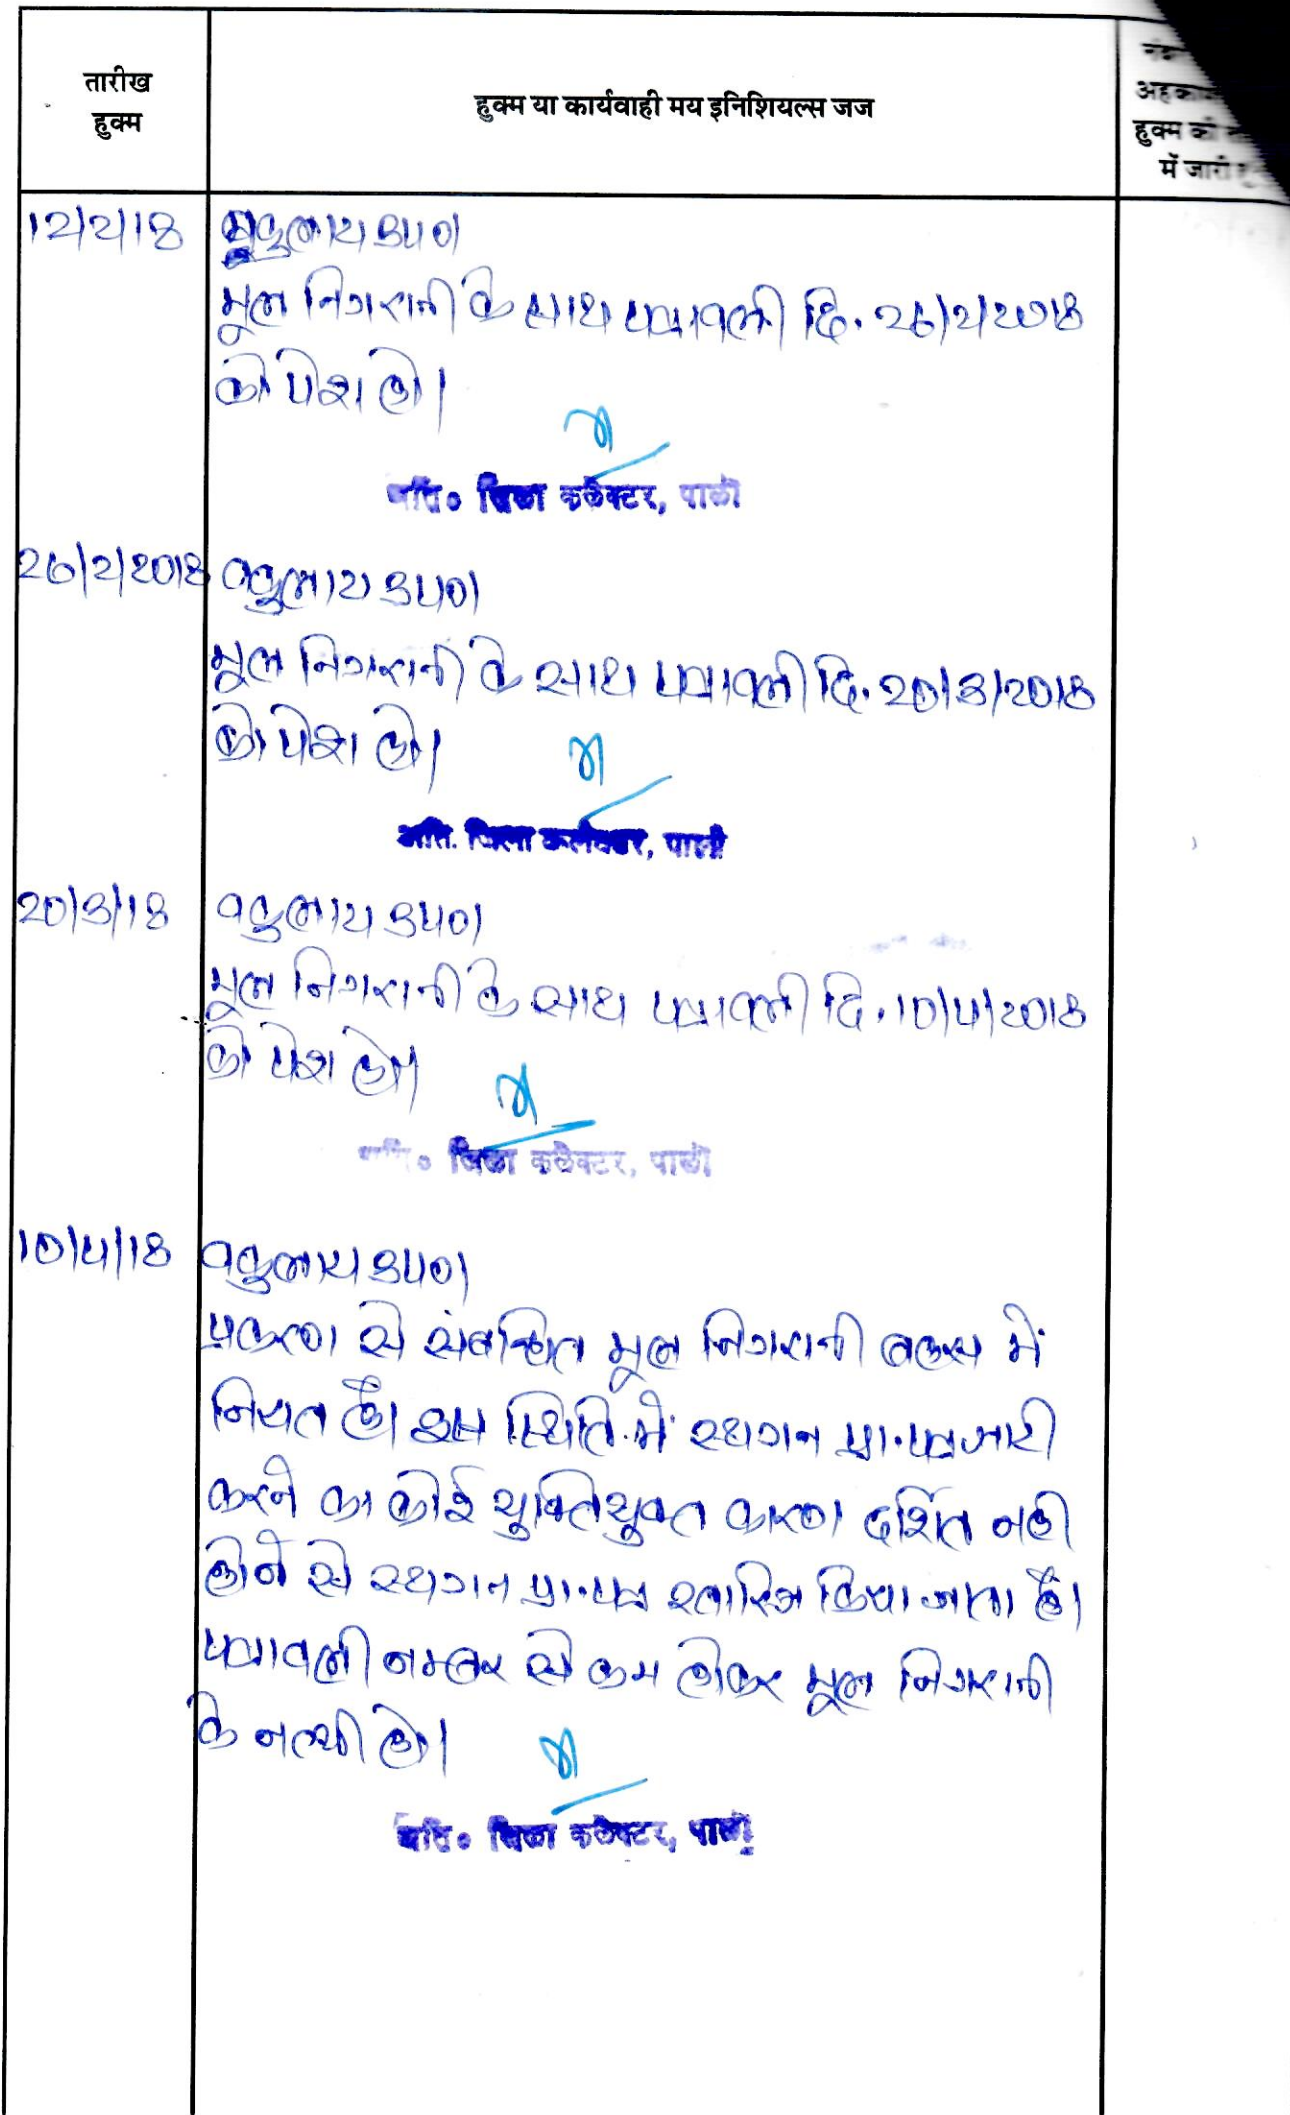 तारीख
हुक्म
हुक्म या कार्यवाही मय इनिशियल्स जज
अहकाम
हुक्म की
में जारी
12/2/18
वकुलाय उपण
मूल निगरानी के साथ पत्रावली दि. 26/2/2018
को पेश हो।
अति० जिला कलैक्टर, पाली
26/2/2018
वकुलाय उपण
मूल निगरानी के साथ पत्रावली दि. 20/3/2018
को पेश हो।
अति. जिला कलैक्टर, पाली
20/3/18
वकुलाय उपण
मूल निगरानी के साथ पत्रावली दि. 10/4/2018
को पेश हो।
अति० जिला कलैक्टर, पाली
10/4/18
वकुलाय उपण
प्रकरण से संबन्धित मूल निगरानी बहस में
नियत है। इस स्थिति में स्थगन प्रा.पत्र जारी
करने का कोई युक्तियुक्त कारण दर्शित नही
होने से स्थगन प्रा.पत्र खारिज किया जाता है।
पत्रावली नम्बर से कम होकर मूल निगरानी
के नत्थी हो।
अति० जिला कलैक्टर, पाली